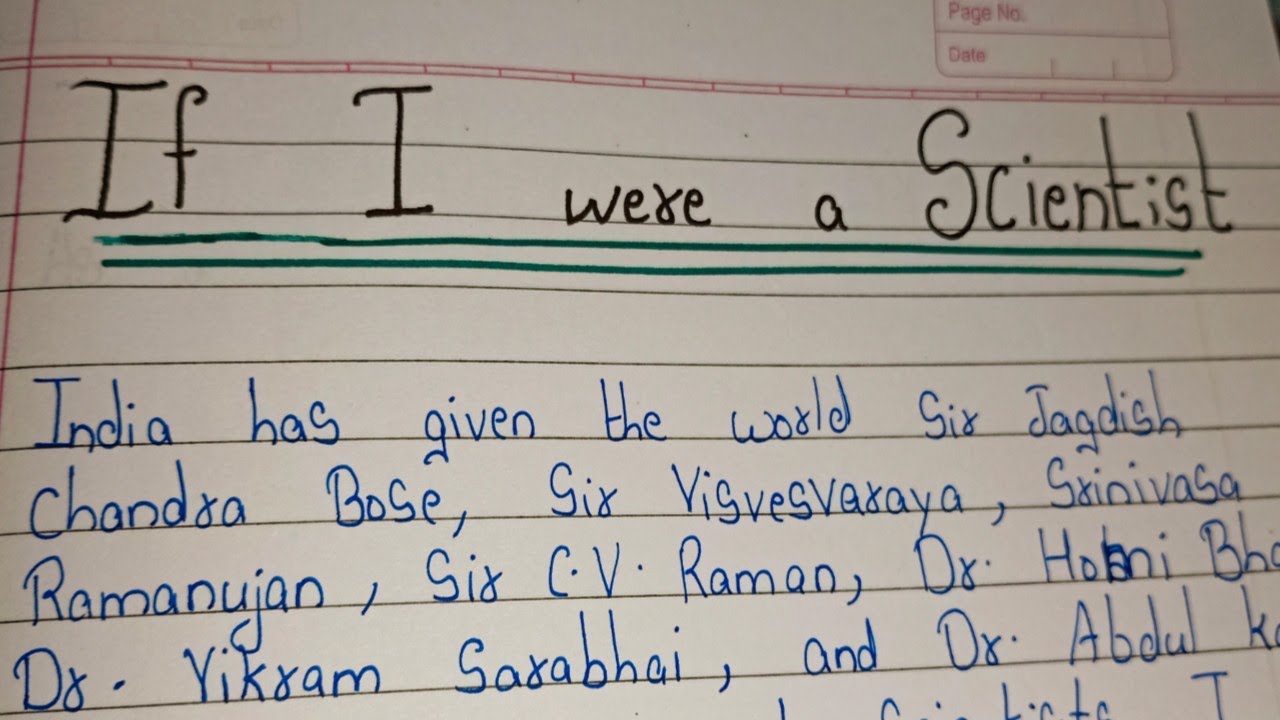 Page No.
Date
If I were a Scientist
India has given the world Sir Jagdish
Chandra Bose, Sir Visvesvaraya, Srinivasa
Ramanujan, Sir C.V. Raman, Dr.
Dr. Vikram Sarabhai, and Dr. Abdul
I